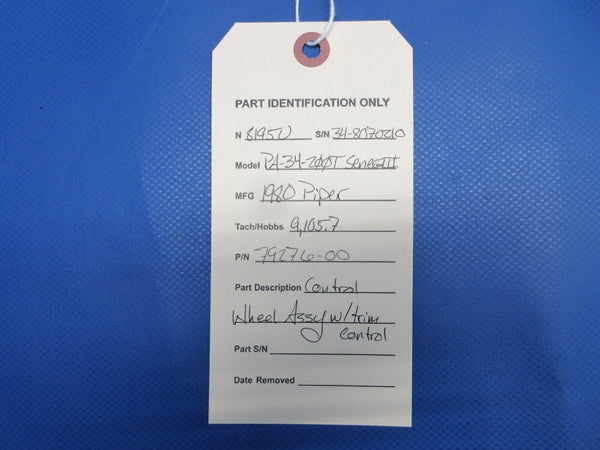 PART IDENTIFICATION ONLY
N 8195U S/N 34-8070210
Model PA-34-200T Seneca II
MFG 1980 Piper
Tach/Hobbs 9,105.7
P/N 79276-00
Part Description Control
Wheel Assy w/trim
control
Part S/N
Date Removed